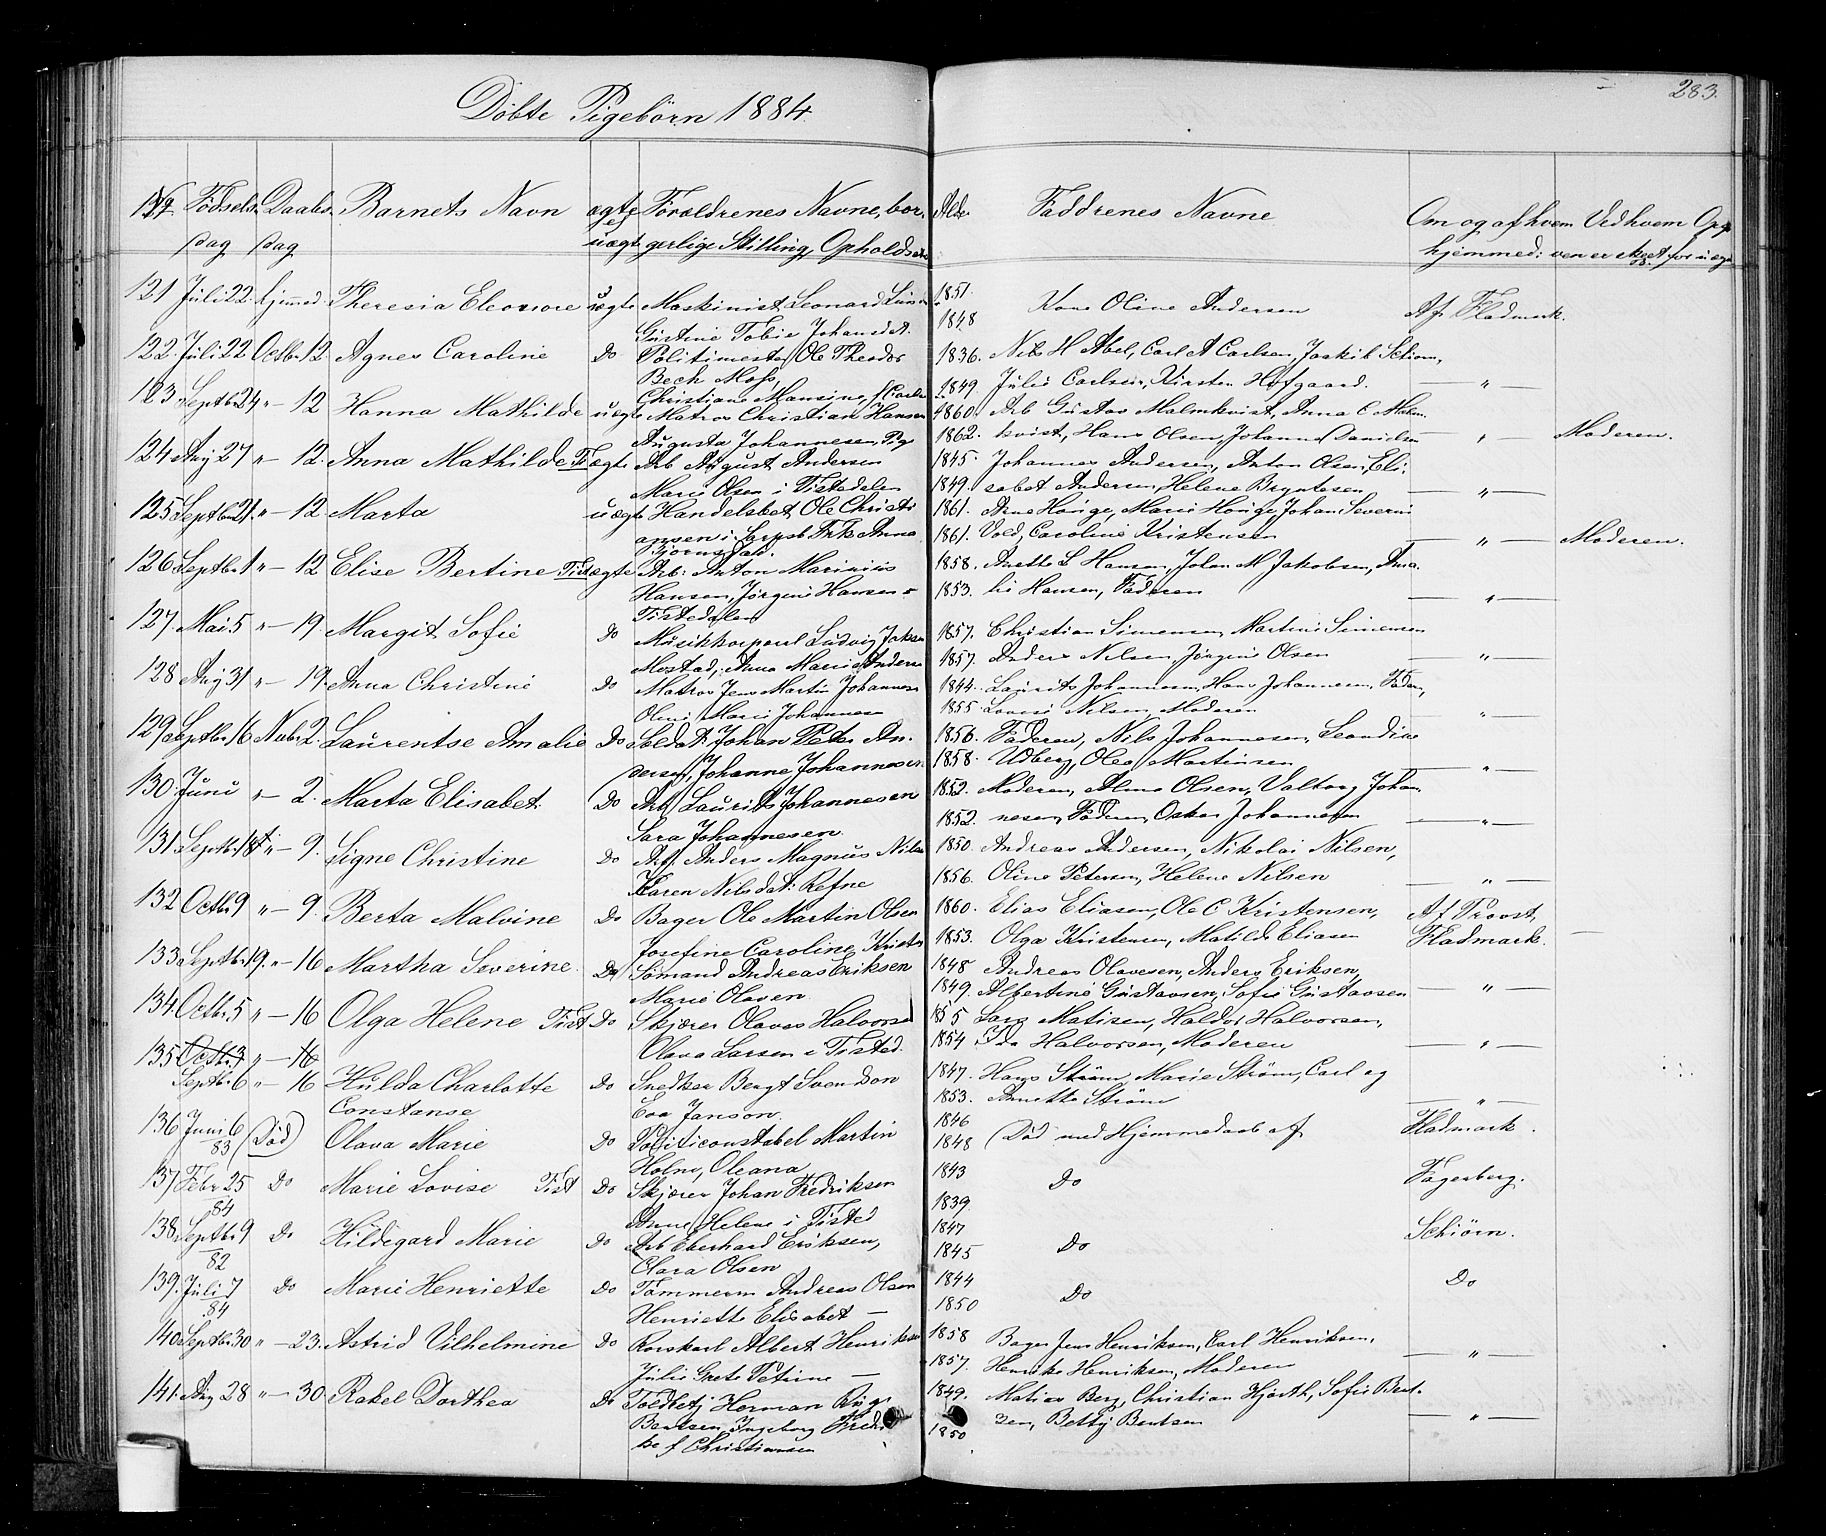 Döbte Pigebörn 1884.
283.
No Födsels Daabs Barnets Navn ægte Forældrenes Navne, bor Alder Faddrenes Navne Om og af hvem Ved hvem Op
dag dag uægt gerlige Stilling, Opholds hjemmed:
121 Juli 22. hjemmed. Theresia Eleonore uægte Maskinist Leonard 1851. Kone Oline Andersen Af Fladmark.
Gustine Tobie 1848
122. Juli 22 Octbr 12. Agnes Caroline Do Politimester Ole Theodor 1836. Nils H Abel, Carl A Carlsen,
Bech Moss, 1849 Julie Carlsen, Kirsten Hofgaard. — " —
123 Septbr 24 " — 12 Hanna Mathilde uægte Christiane Matros Christian Hansen 1860. Arb Gustav Malmkvist, Anna C Malm
Augusta Johannesen Pige 1862. kvist, Hans Olsen, Johanne Danielsen — " — Moderen.
124 Aug 27 " — 12. Anna Mathilde Ti ægte Arb August Andersen 1845. Johannes Andersen, Anton Olsen, Eli
Marie Olsen i Tistedalen 1849. sabet Andersen, Helene Bryntesen — " —
125 Septbr 21. " — 12. Marta uægte Handelsbet Ole Christi 1861. Arne Hauge, Marie Hauge, Johan Severin
ansen i Sarpsb Frk Anna 1861. Vold, Caroline Kristensen — " — Moderen.
Bjornstad.
126 Septbr 1 " — 12 Elise Bertine Tist ægte Arb: Anton Marinius 1858. Anette L Hansen, Johan M Jakobsen, Ama
Hansen, Jørgine Hansen 1853. li Hansen, Faderen — " —
Tistedalen
127. Mai 5 " — 19. Margit Sofie Do Musikkorporal Ludvig 1857. Christian Simensen, Martine Simensen
Mostad, Anna Marie Anders 1857. Anders Nilsen, Jörgine Olsen — " —
128 Aug 31 " — 19. Anna Christine Do Matros Jens Martin Johannes 1844. Laurits Johannesen, Hans Johannesen, Fader,
Oline Marie Johannesen 1855. Lovise Nilsen, Moderen — " —
129 Septbr 16 Novbr 2. Laurentse Amalie Do Soldat: Johan Peter An. 1856. Faderen, Nils Johannesen, Leandine
dersen, Johanne Johannesen 1858. Udberg, Olea Martinsen — " —
130 Juni " — 2. Marta Elisabet Do Arb Laurits Johannesen 1852. Moderen, Alma Olsen, Valborg Johan
Sara Johannesen 1852. nesen, Faderen, Oskar Johannesen — " —
131 Septbr 18 " — 9. Signe Christine Do Arb. Anders Magnus Nilsen 1850. Andreas Andersen, Nikolai Nilsen,
Karen Nilsdat: Refne 1856. Oline Petersen, Helene Nilsen — " —
132 Octbr 9 " — 9. Berta Malvine Do Bager Ole Martin Olsen 1860. Elias Eliasen, Ole C Kristensen, Af Provst,
Josefine Caroline Krist 1853. Olga Kristensen, Matilde Eliasen Fladmark. —
133 Septbr 19. " — 16 Martha Severine Do Sömand Andreas Eriksen 1848 Andreas Olavesen, Anders Eriksen,
Marie Olavsen 1849. Albertine Gustavsen, Sofie Gustavsen — " —
134. Octbr 5 " — 16 Olga Helene Tist Do Skjærer Olaves Halvorsen 1855 Lars Matisen, Haldor Halvorsen,
Olava Larsen i Tisted. 1854 Ida Halvorsen, Moderen — " —
135 Octbr 3 " — 16
Septbr 6 " — 16 Hulda Charlotte Do Snedker Bengt Svendson 1847. Hans Ström, Marie Ström, Carl og
Constanse Eva Janson. 1853. Annette Ström — " —
136 Juni 6 (Död) Olava Marie Do Politiconstabel Martin 1846 (Död med Hjemmedaab af Fladmark.
83 Holm, Oleana 1848
137 Febr 25 Do Marie Lovise Tist Do Skjærer Johan Fredriksen 1843 Do Fagerberg.
84 Anne Helene i Tisted 1839.
138 Septbr 9 Do Hildegard Marie Do Arb Eberhard Eriksen, 1847 Do Schiörn.
82 Clara Olsen 1845
139. Juli 7 Do Marie Henriette Do Tömmerm Andreas Olsen 1844 Do Do
84 Henriette Elisabet — 1850
140 Septbr 30 " — 23. Astrid Vilhelmine Do Rorskarl Albert Henriksen 1858 Bager Jens Henriksen, Carl Henriksen,
Julie Grete Petrine — 1857. Henrike Henriksen, Moderen — " —
141. Aug 28 " — 30. Rakel Dorthea Do Toldbetj Herman 1849. Matias Berg, Christian Hjorth, Sofie Bent
Bentsen, Ingeborg Fredrik 1850 zen, Betty Bentsen — " —
ke f Christiansen